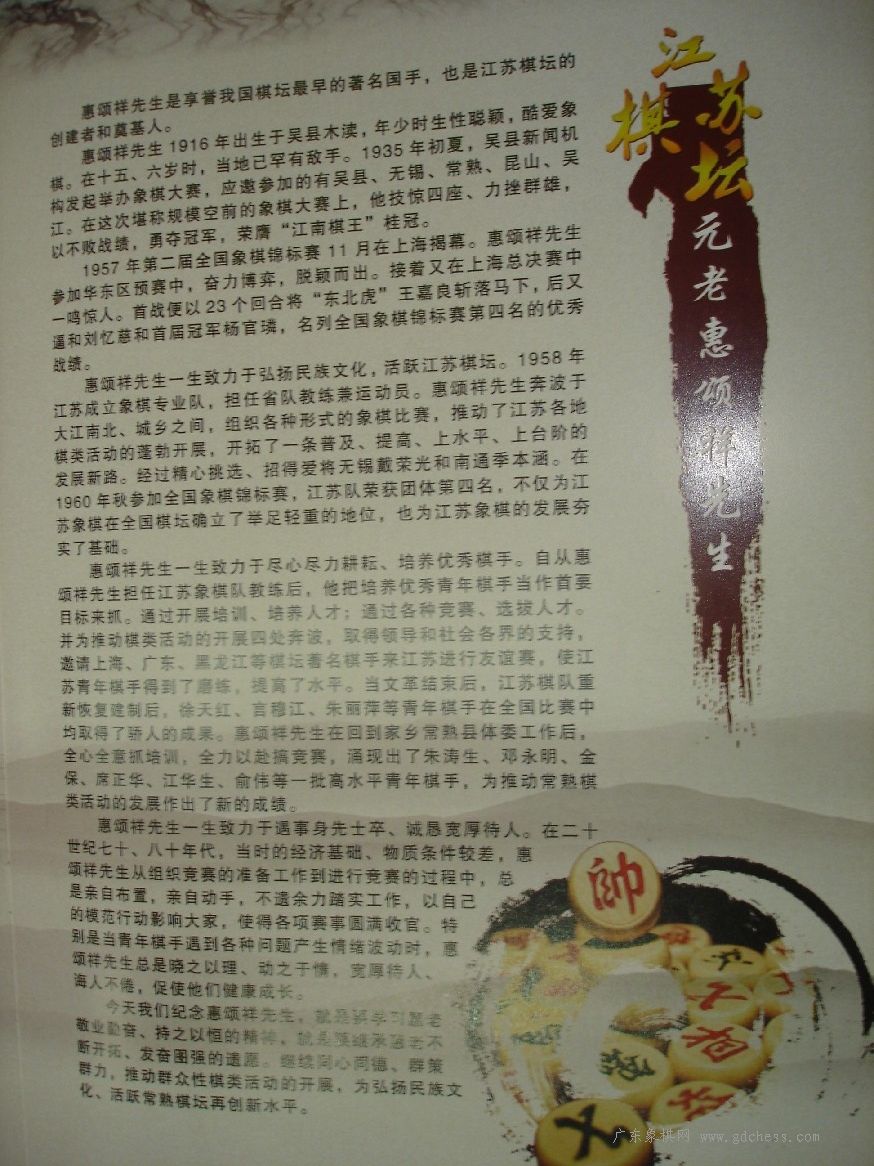 江苏棋坛
元老惠颂祥先生
惠颂祥先生是享誉我国棋坛最早的著名国手，也是江苏棋坛的
创建者和奠基人。
惠颂祥先生1916年出生于吴县木渎，年少时生性聪颖，酷爱象
棋。在十五、六岁时，当地已罕有敌手。1935年初夏，吴县新闻机
构发起举办象棋大赛，应邀参加的有吴县、无锡、常熟、昆山、吴
江。在这次堪称规模空前的象棋大赛上，他技惊四座、力挫群雄，
以不败战绩，勇夺冠军，荣膺“江南棋王”桂冠。
1957年第二届全国象棋锦标赛11月在上海揭幕。惠颂祥先生
参加华东区预赛中，奋力博弈，脱颖而出。接着又在上海总决赛中
一鸣惊人。首战便以23个回合将“东北虎”王嘉良斩落马下，后又
逼和刘忆慈和首届冠军杨官璘，名列全国象棋锦标赛第四名的优秀
战绩。
惠颂祥先生一生致力于弘扬民族文化，活跃江苏棋坛。1958年
江苏成立象棋专业队，担任省队教练兼运动员。惠颂祥先生奔波于
大江南北、城乡之间，组织各种形式的象棋比赛，推动了江苏各地
棋类活动的蓬勃开展，开拓了一条普及、提高、上水平、上台阶的
发展新路。经过精心挑选、招得爱将无锡戴荣光和南通季本涵。在
1960年秋参加全国象棋锦标赛，江苏队荣获团体第四名，不仅为江
苏象棋在全国棋坛确立了举足轻重的地位，也为江苏象棋的发展夯
实了基础。
惠颂祥先生一生致力于尽心尽力耕耘、培养优秀棋手。自从惠
颂祥先生担任江苏象棋队教练后，他把培养优秀青年棋手当作首要
目标来抓。通过开展培训、培养人才；通过各种竞赛、选拔人才。
并为推动棋类活动的开展四处奔波，取得领导和社会各界的支持，
邀请上海、广东、黑龙江等棋坛著名棋手来江苏进行友谊赛，使江
苏青年棋手得到了磨练，提高了水平。当文革结束后，江苏棋队重
新恢复建制后，徐天红、言穆江、朱丽萍等青年棋手在全国比赛中
均取得了骄人的成果。惠颂祥先生在回到家乡常熟县体委工作后，
全心全意抓培训，全力以赴搞竞赛，涌现出了朱涛生、邓永明、金
保、席正华、江华生、俞伟等一批高水平青年棋手，为推动常熟棋
类活动的发展作出了新的成绩。
惠颂祥先生一生致力于遇事身先士卒、诚恳宽厚待人。在二十
世纪七十、八十年代，当时的经济基础、物质条件较差，惠
颂祥先生从组织竞赛的准备工作到进行竞赛的过程中，总
是亲自布置，亲自动手，不遗余力踏实工作，以自己
的模范行动影响大家，使得各项赛事圆满收官。特
别是当青年棋手遇到各种问题产生情绪波动时，惠
颂祥先生总是晓之以理、动之于情，宽厚待人、
海人不倦，促使他们健康成长。
今天我们纪念惠颂祥先生，就是要学习惠老
敬业勤奋、持之以恒的精神，就是要继承惠老不
断开拓、发奋图强的遗愿。继续同心同德、群策
群力，推动群众性棋类活动的开展，为弘扬民族文
化、活跃常熟棋坛再创新水平。
帥
广东象棋网 www.gdchess.com